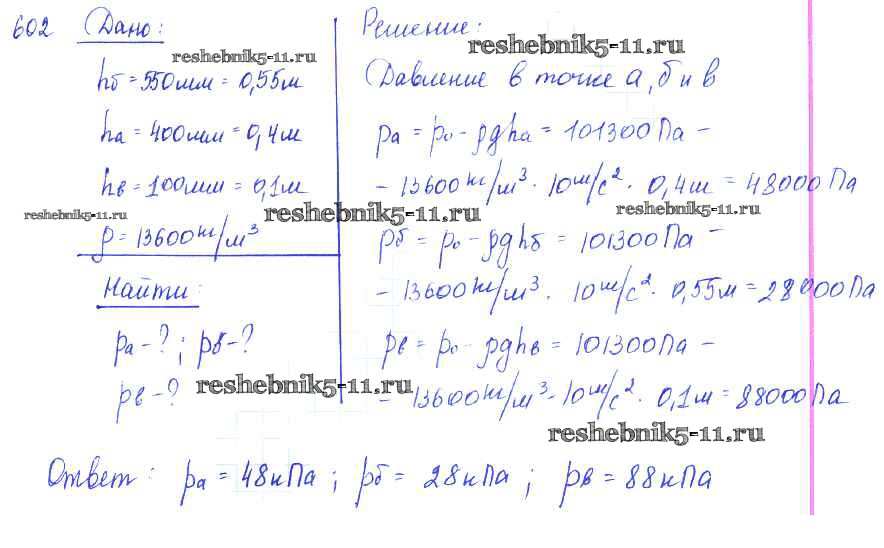 602 Дано:
reshebnik5-11.ru
hб = 550мм = 0,55м
hа = 400мм = 0,4м
hв = 100мм = 0,1м
reshebnik5-11.ru
ρ = 13600 кг/м³
Найти:
pа - ? ; pб - ?
pв - ?
reshebnik5-11.ru
Решение:
reshebnik5-11.ru
Давление в точке а, б и в
pа = p₀ - ρghа = 101300 Па -
- 13600 кг/м³ · 10 м/с² · 0,4м = 48000 Па
reshebnik5-11.ru reshebnik5-11.ru
pб = p₀ - ρghб = 101300 Па -
- 13600 кг/м³ · 10 м/с² · 0,55м = 28000 Па
pв = p₀ - ρghв = 101300 Па -
- 13600 кг/м³ · 10 м/с² · 0,1м = 88000 Па
reshebnik5-11.ru
Ответ: pа = 48 кПа ; pб = 28 кПа ; pв = 88 кПа